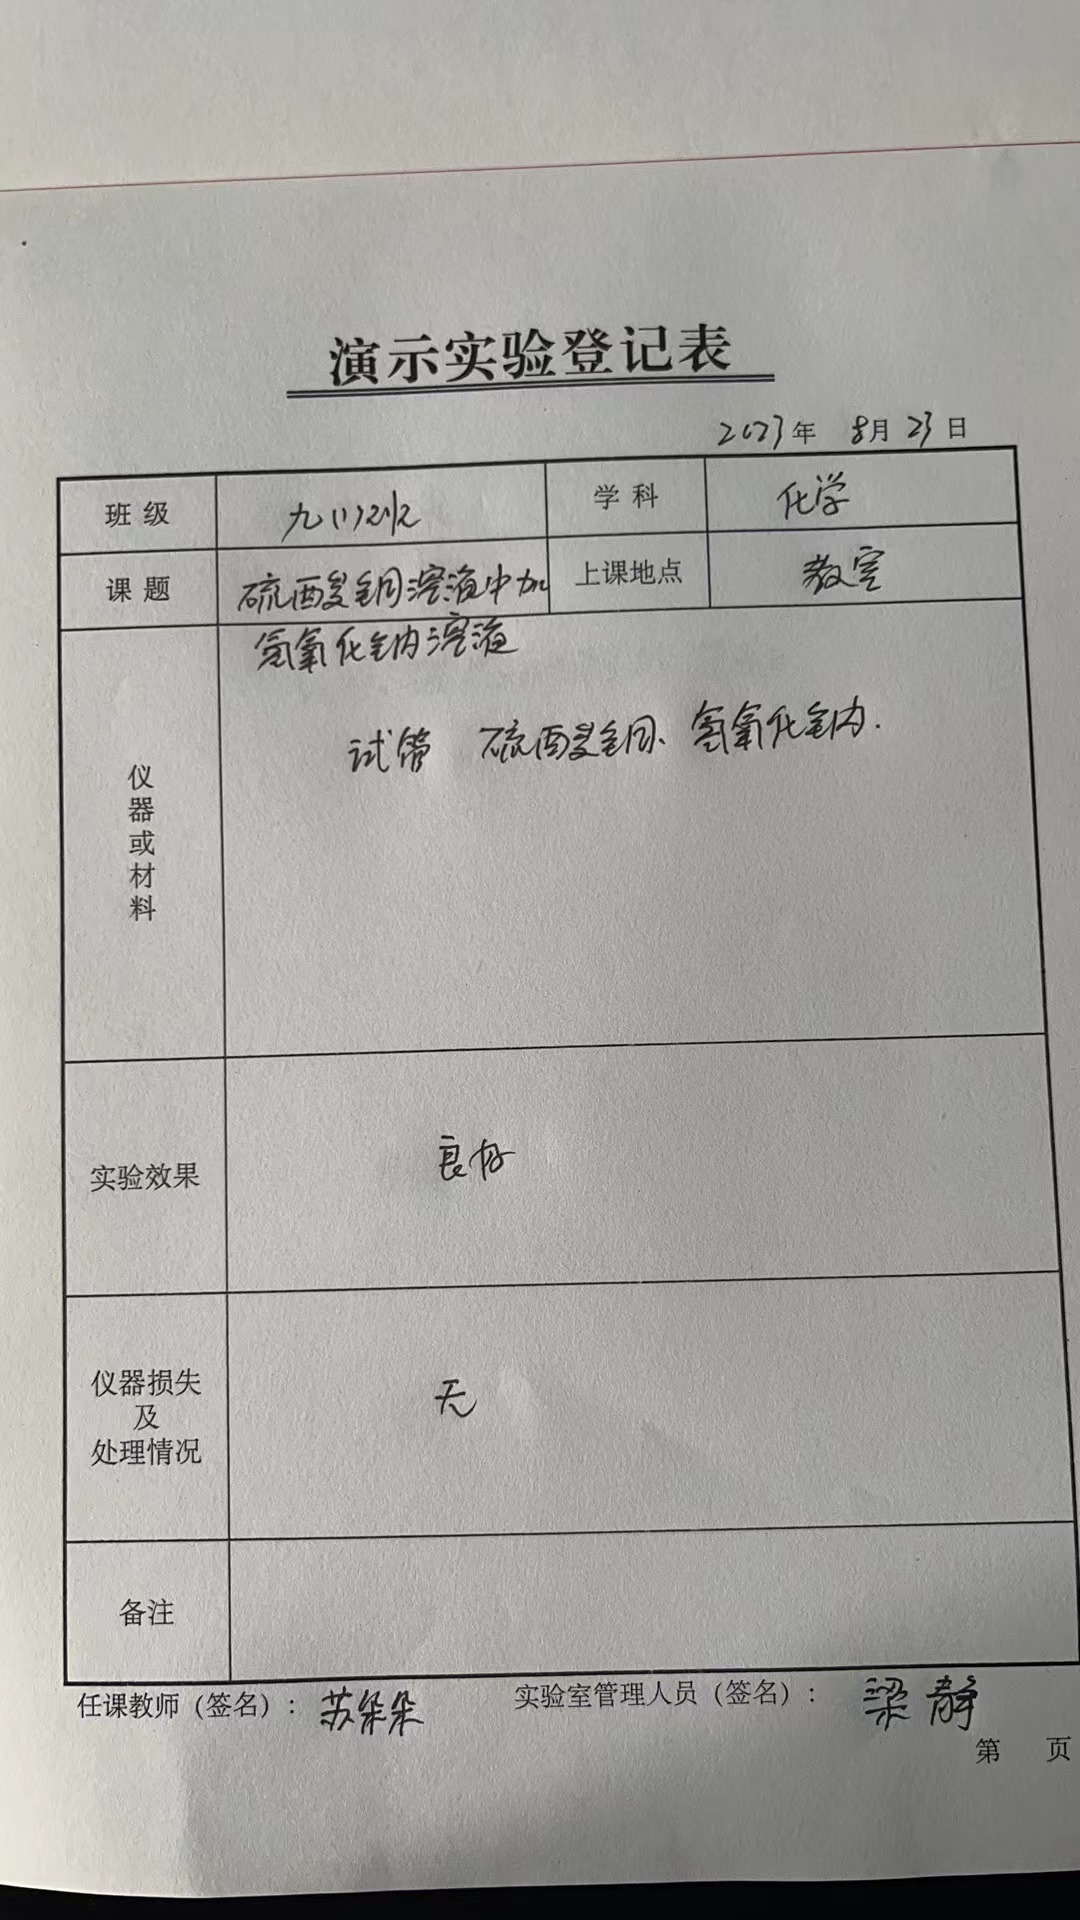 演示实验登记表
2023年 8月23日
班级 九(1)班 学科 化学
课题 硫酸铜溶液中加 上课地点 教室
氢氧化钠溶液
仪器或材料 试管 硫酸铜、氢氧化钠.
实验效果 良好
仪器损失
及
处理情况 无
备注
任课教师（签名）：苏朵朵 实验室管理人员（签名）：梁静
第 页